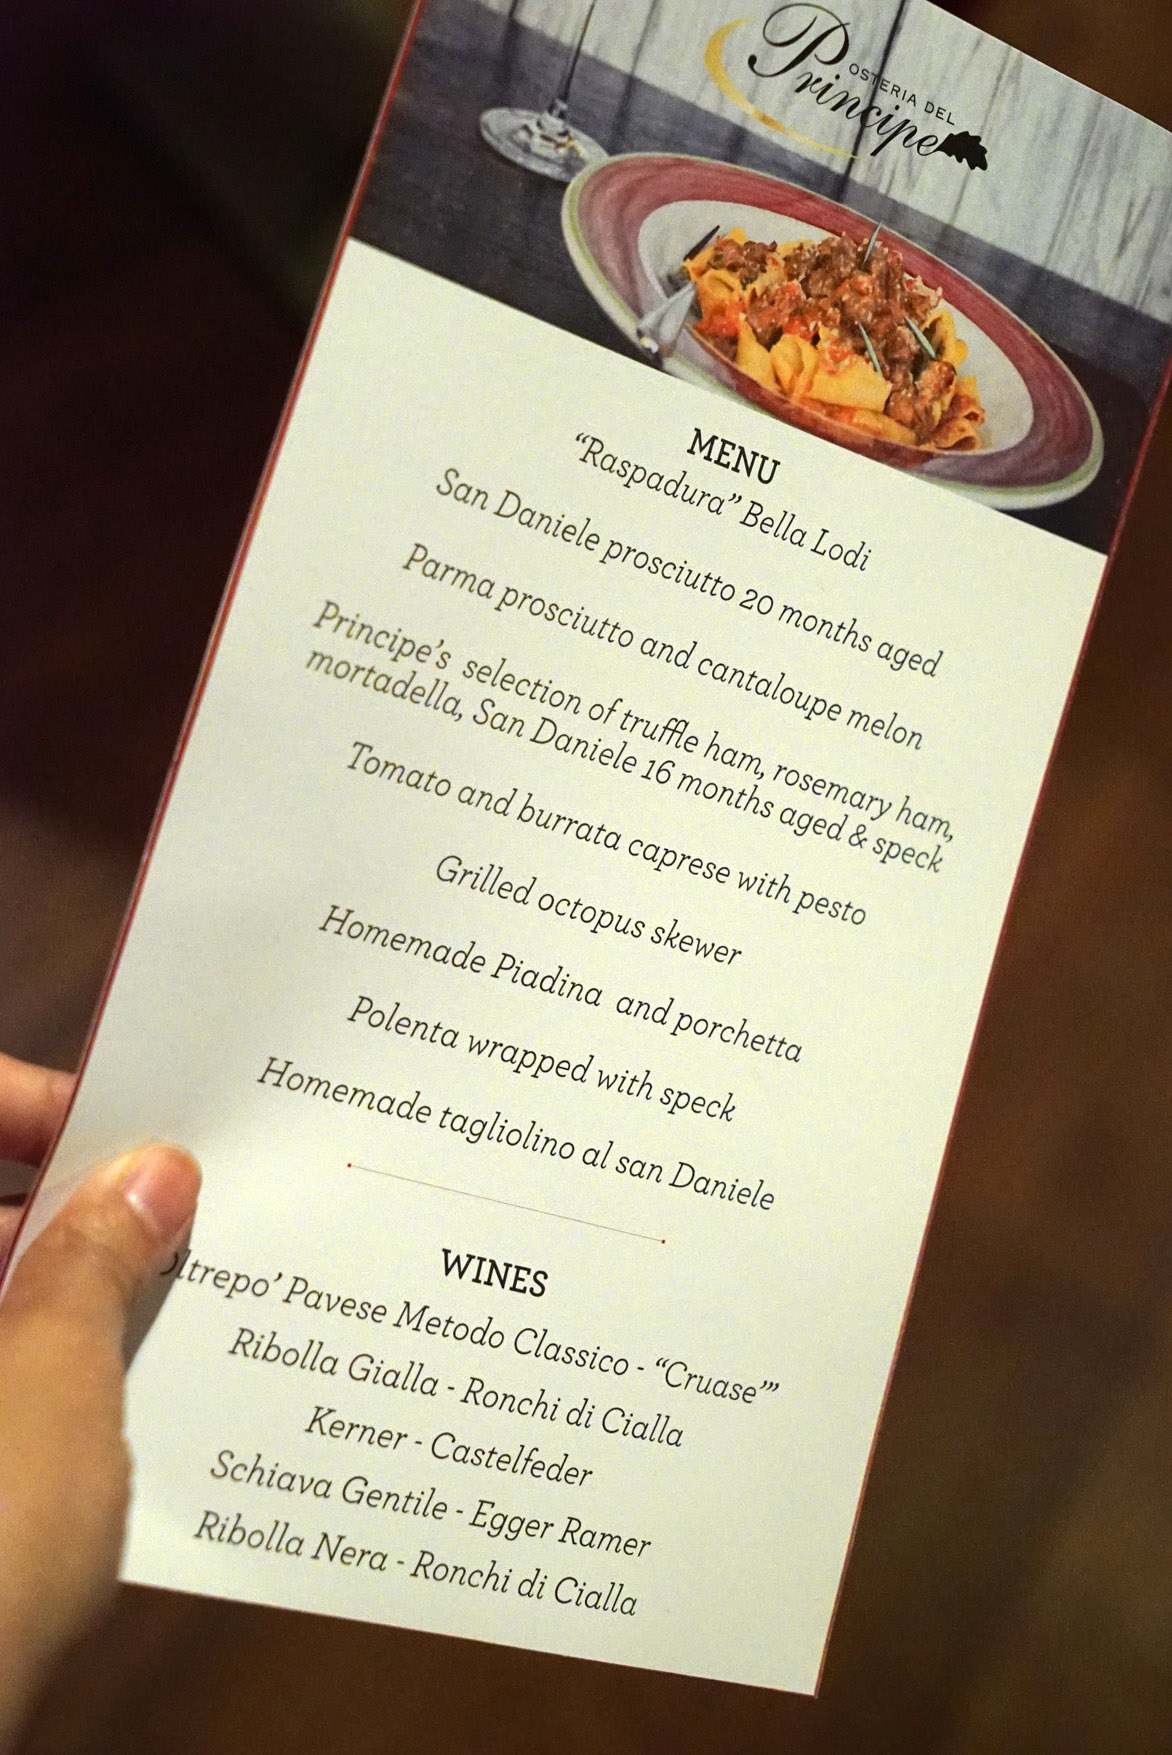 OSTERIA DEL
Principe
MENU
“Raspadura” Bella Lodi
San Daniele prosciutto 20 months aged
Parma prosciutto and cantaloupe melon
Principe’s selection of truffle ham, rosemary ham,
mortadella, San Daniele 16 months aged & speck
Tomato and burrata caprese with pesto
Grilled octopus skewer
Homemade Piadina and porchetta
Polenta wrapped with speck
Homemade tagliolino al san Daniele
WINES
Oltrepo’ Pavese Metodo Classico - “Cruase’”
Ribolla Gialla - Ronchi di Cialla
Kerner - Castelfeder
Schiava Gentile - Egger Ramer
Ribolla Nera - Ronchi di Cialla